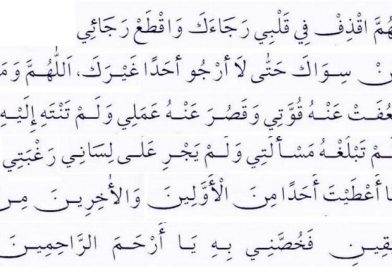 هُمَّ اقْذِفْ فِي قَلْبِي رَجَاءَكَ وَاقْطَعْ رَجَائِي
نْ سِوَاكَ حَتَّى لَا أَرْجُو أَحَدًا غَيْرَكَ، اَللّٰهُمَّ وَمَ
عُفَتْ عَنْهُ قُوَّتِي وَقَصُرَ عَنْهُ عَمَلِي وَلَمْ تَنْتَهِ إِلَيْهِ
مْ تَبْلُغْهُ مَسْأَلَتِي وَلَمْ يَجْرِ عَلَى لِسَانِي رَغْبَتِي
ا أَعْطَيْتَ أَحَدًا مِنَ الْأَوَّلِينَ وَالْأٰخِرِينَ مِنَ
يَقِينِ فَخُصَّنِي بِهِ يَا أَرْحَمَ الرَّاحِمِينَ